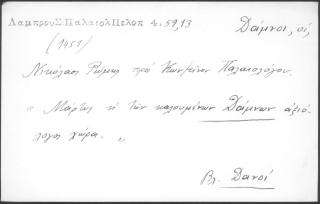 ΛαμπρουΣ.ΠαλαιολΠελοπ 4.59,13 Δάμνοι, οἱ,
(1451)
Νικόλαος Ῥώμας πρὸς Κωνσταῖνον Παλαιολόγον.
„ Μάρτυς ἡ τῶν καλουμένων Δάμνων ἀξιό-
λογος χώρα. „
Βλ. Δανοί